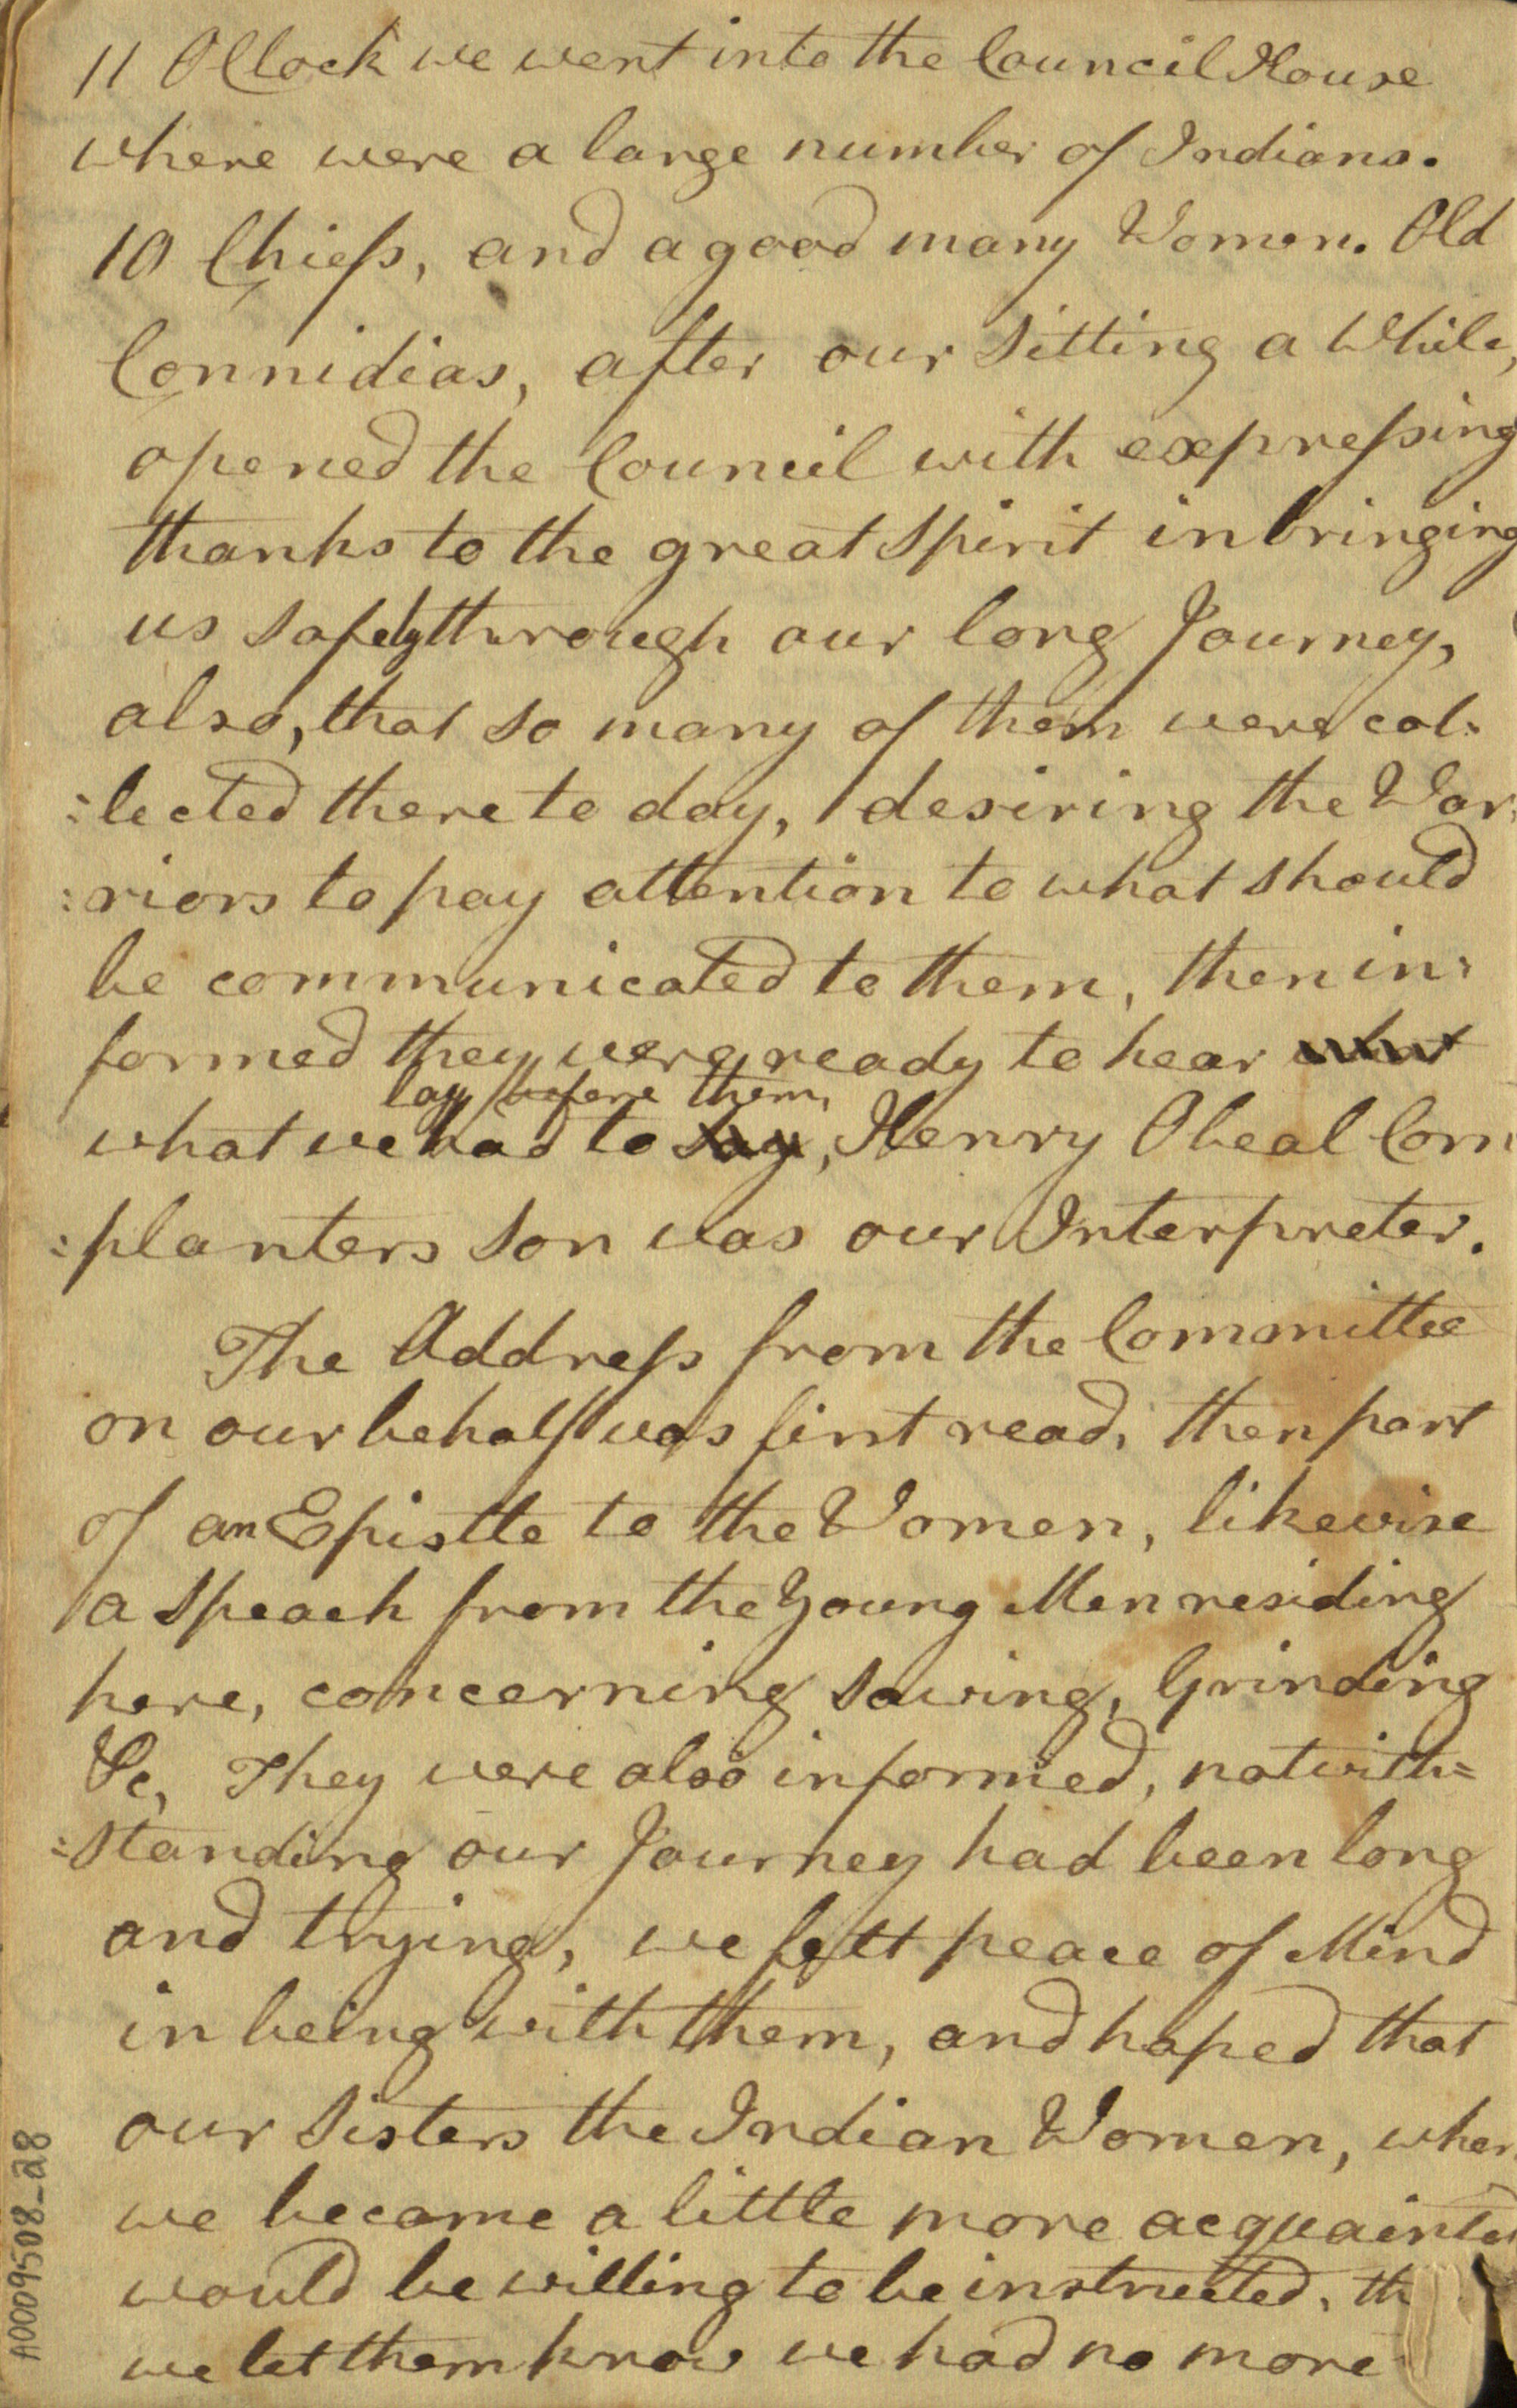 11 OClock we went into the Council House
where were a large number of Indians.
10 Chiefs, and a good many Women. Old
Connidias, after our Sitting a While,
opened the Council with expressing
thanks to the great Spirit in bringing
us Safely through our long Journey,
also, that so many of them were col:
:lected there to day, desiring the War:
:riors to pay attention to what should
be communicated to them, then in:
formed they were ready to hear what
lay before them,
what we had to say, Henry Obeal Corn
:planters Son was our Interpreter.
The Address from the Committee
on our behalf was first read, then part
of an Epistle to the Women, likewise
a Speach from the Young Men residing
here, concerning Sawing, Grinding
&c, They were also informed, notwith=
:standing our Journey had been long
and trying, we felt peace of Mind
in being with them, and hoped that
our Sisters the Indian Women, when
we became a little more acquainted
would be willing to be instructed, th
we let them know we had no more
A0009508_a8